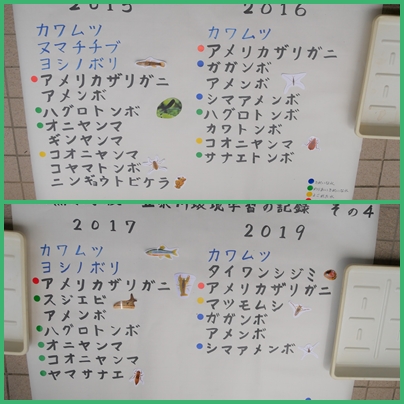 2015
カワムツ
ヌマチチブ
ヨシノボリ
アメリカザリガニ
アメンボ
ハグロトンボ
オニヤンマ
ギンヤンマ
コオニヤンマ
コヤマトンボ
ニンギョウトビケラ
2016
カワムツ
アメリカザリガニ
ガガンボ
アメンボ
シマアメンボ
ハグロトンボ
カワトンボ
コオニヤンマ
サナエトンボ
川環境学習の記録 その4
2017
カワムツ
ヨシノボリ
アメリカザリガニ
スジエビ
アメンボ
ハグロトンボ
オニヤンマ
コオニヤンマ
ヤマサナエ
2019
カワムツ
タイワンシジミ
アメリカザリガニ
マツモムシ
ガガンボ
アメンボ
シマアメンボ